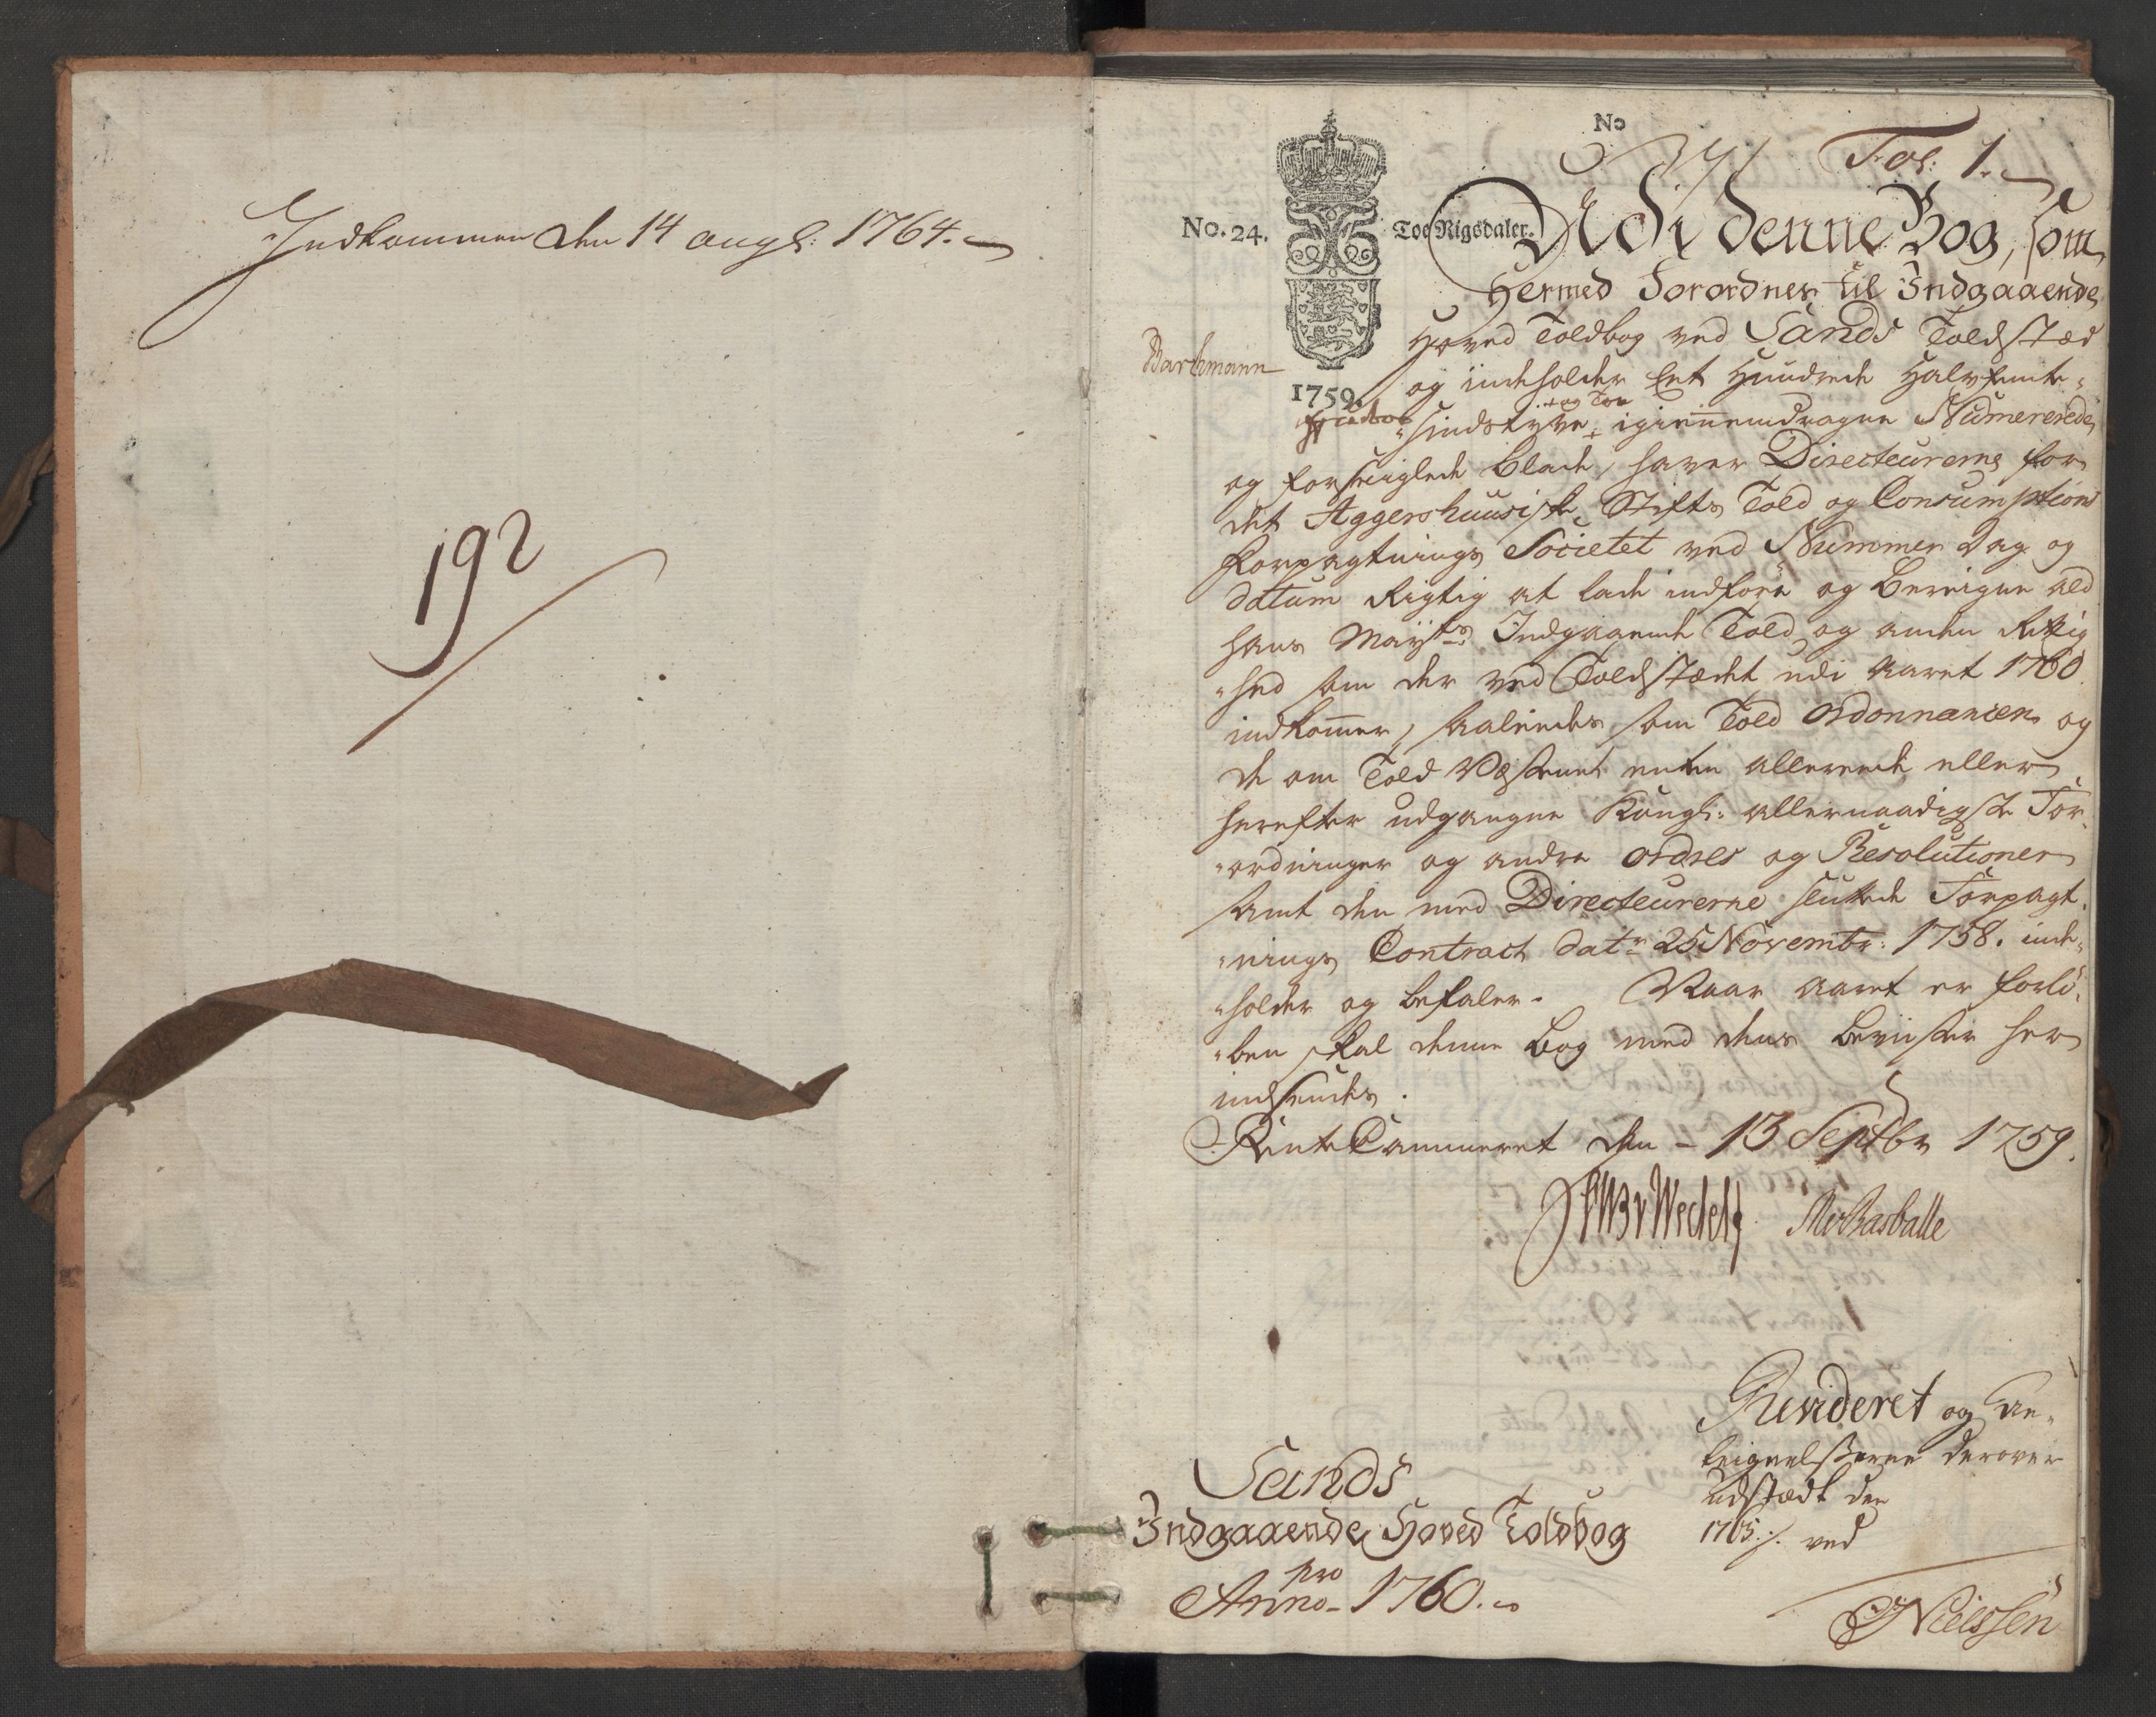 Indkommen den 14 augs: 1764.
192
No
341
Fol: 1.
No. 24.
Toe Rigsdaler.
1759.
Udi denne Bog, som
Hermed Forordnes til Indgaaende
Hoved Toldbog ved Sands Toldstæd
Bartzmann
og indeholder Eet Hundrede Halvfemte-
+ og Toe
-sindstyve + igiennemdragne Numererede
og forseiglede Blade, haver Directeurerne for
det Aggershuusiske Stifts Told og Consumptions
Forpagtnings Societet ved Nummer Dag og
Datum Rigtig at lade indføre og Bereigne all
Hans Mayts: Indgaaende Told og anden Rettig
-hed som der ved Toldstædet udi Aaret 1760
indkommer, saaleedes som Told Ordonnancen og
de om Told Væsenet enten allereede eller
herefter udgangne Kongl: allernaadigste For-
-ordninger og andre Ordres og Resolutioner
samt den med Directeurerne sluttede Forpagt-
-nings Contract dat: 25 Novembr: 1758. inde-
-holder og befaler. Naar Aaret er forlø-
-ben skal denne Bog med dens Beviiser her
indsendes.
RenteCammeret den - 13 Septbr 1759.
Wedel MvRasballe
Revideret og An-
teignelsserne derover
udstædt den
1765 ./. ved
Nielssen
Sands
Indgaaende Hoved Toldbog
pro
Anno - 1760.